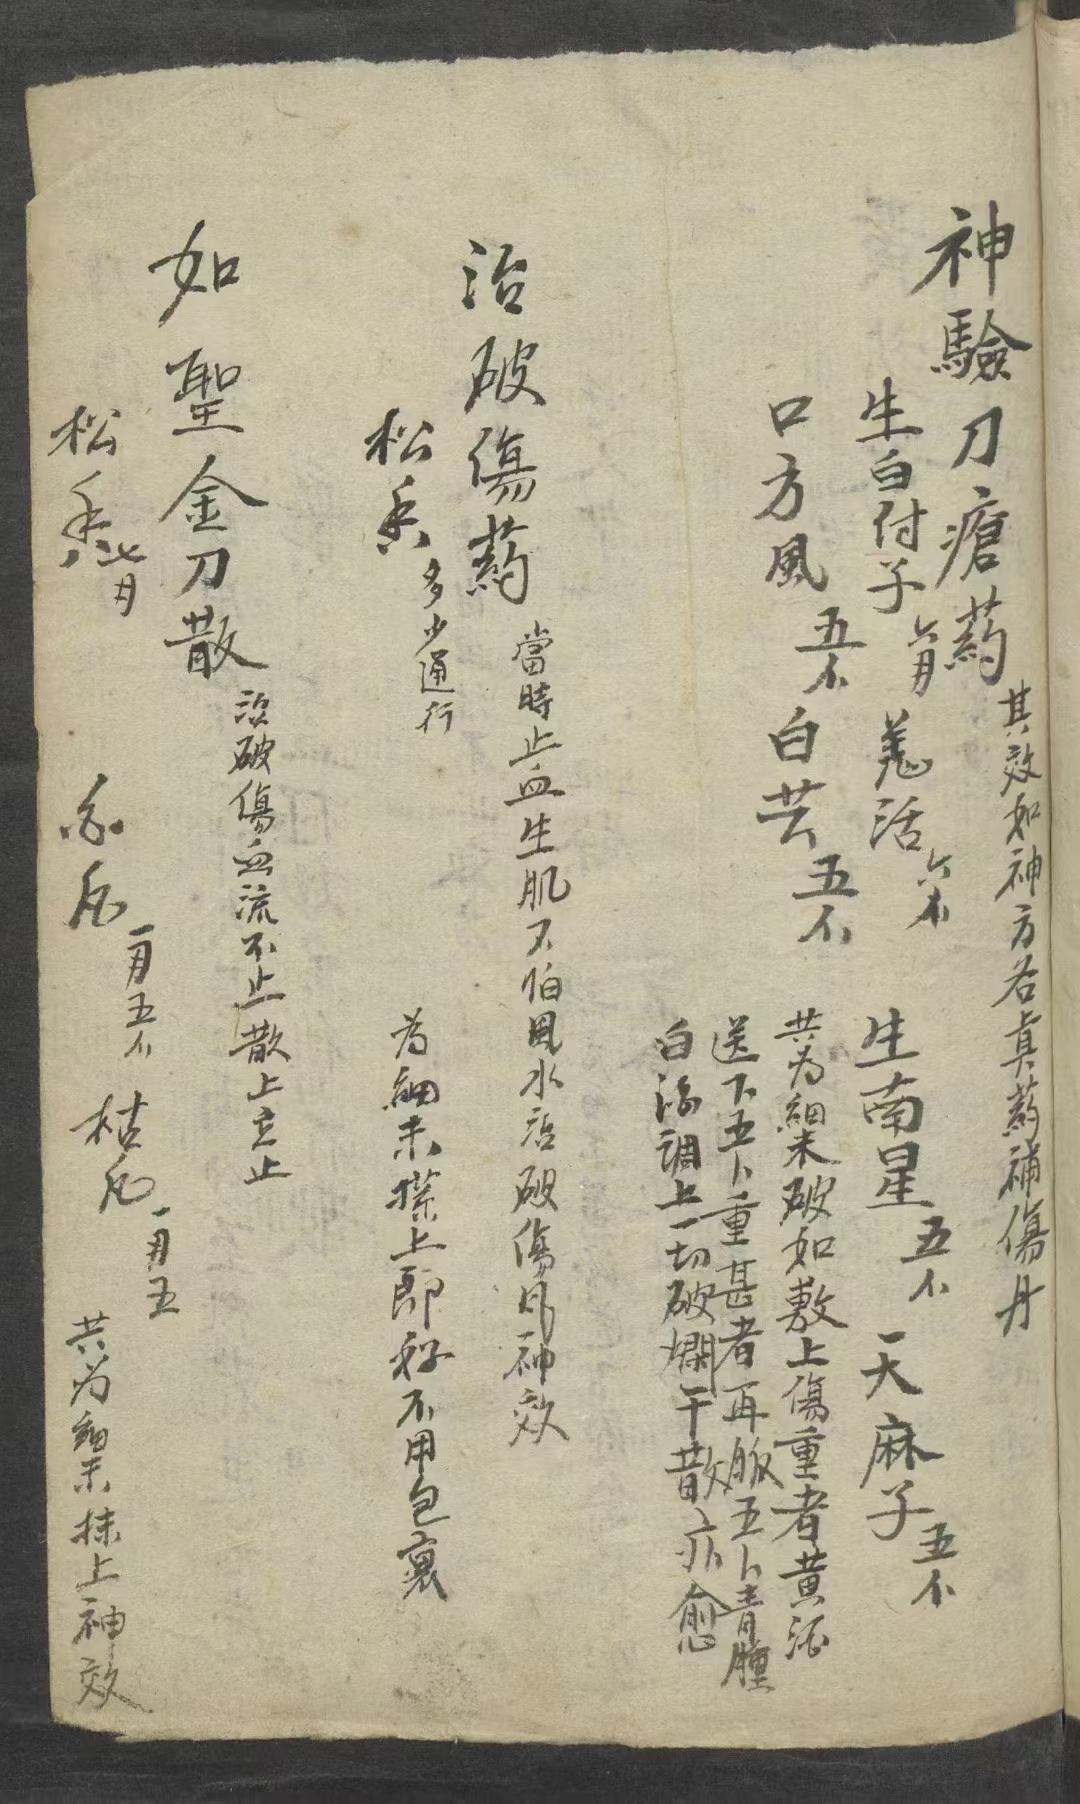 神驗刀瘡药 其效如神方名真药補傷丹
生白付子 羗活 生南星五个 天麻子五个
口方風五个 白芸五个
共为細末破如敷上傷重者黄酒
送下五卜重甚者再服五卜青腫
白湯調上一切破爛干散亦愈
治破傷药 當時止血生肌不怕風水治破傷风神效
松香 多少通行 为細末搽上即好不用包裹
如聖金刀散 治破傷血流不止散上立止
松香 白凡 一月五个 枯凡 一月五 共为細末抹上神效